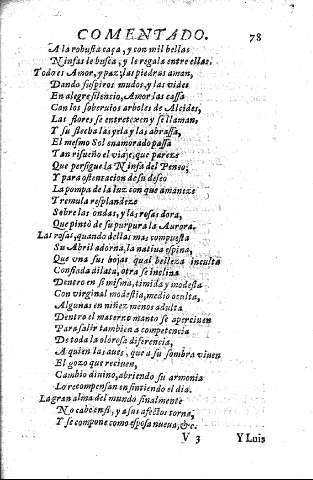 COMENTADO. 78
A la robusta caça, y con mil bellas
Ninfas le busca, y le regala entre ellas.
Todo es Amor, y paz; las piedras aman,
Dando suspiros mudos, y las vides
En alegre silencio, Amor las cassa
Con los soberuios arboles de Alcides,
Las flores se entretexen y se llaman,
Y su flecha las yela y las abrassa,
El mesmo Sol enamorado passa
Tan risueño el viaje, que pareze
Que persigue la Ninfa del Peneo;
Y para ostentacion de su deseo
La pompa de la luz con que amaneze
Tremula resplandeze
Sobre las ondas, y las rosas dora,
Que pintò de su purpura la Aurora.
Las rosas, quando dellas mas compuesta
Su Abril adorna, la natiua espina,
Que vna sus hojas qual belleza inculta
Confiada dilata, otra se inclina
Dentro en si misma, timida y modesta
Con virginal modestia, medio oculta,
Algunas en niñez menos adulta
Dentro el materno manto se aperciuen
Para salir tambien a competencia
De toda la olorosa diferencia,
A quien las aues, que a su sombra viuen
El gozo que reciuen,
Cambio diuino, abriendo su armonia
Lo recompensan en sintiendo el dia.
La gran alma del mundo finalmente
No cabe en si, y a sus afectos torna,
Y se compone como esposa nueua, &c.
V 3 Y Luis